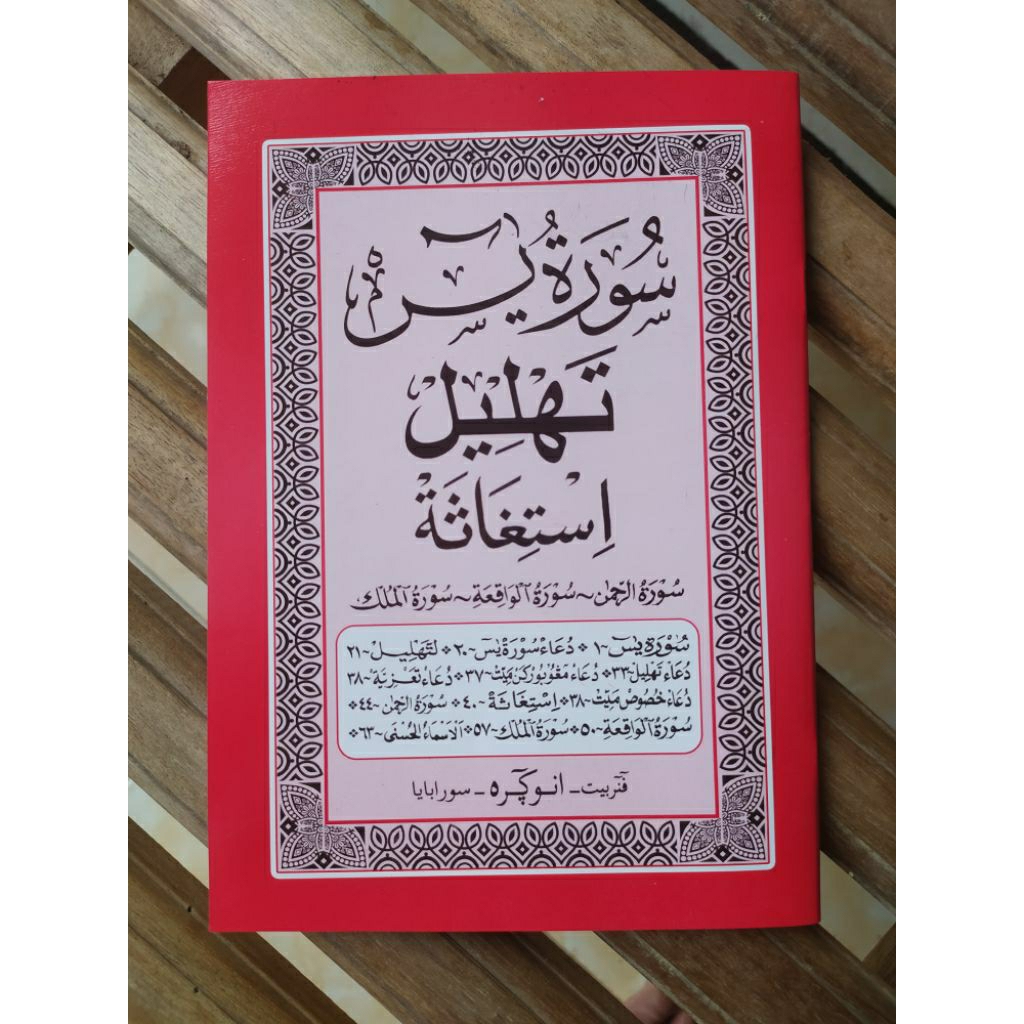 سُورَةُ يٰسٓ
تَهْلِيل
اِسْتِغَاثَة
سُوْرَةُ الرَّحْمٰن ~ سُوْرَةُ الْوَاقِعَةِ ~ سُوْرَةُ الْمُلْك
سُوْرَة يٰسٓ ~ ١ * دُعَاء سُوْرَة يٰسٓ ~ ٢٠ * لتَهْلِيْل ~ ٢١
دُعَاء تَهْلِيْل ~ ٣٣ * دُعَاء مَيِّتْ ~ ٣٧ * دُعَاء تَعْزِيَة ~ ٣٨
دُعَاء خُصُوْص مَيِّتْ ~ ٣٨ * اِسْتِغَاثَة ~ ٤٠ * سُوْرَةُ الرَّحْمٰن ~ ٤٤ *
سُوْرَةُ الْوَاقِعَةِ ~ ٥٠ * سُوْرَةُ الْمُلْك ~ ٥٧ * الْاَسْمَاءُ الْحُسْنَى ~ ٦٣ *
فنربيت - انوڬره - سورابايا